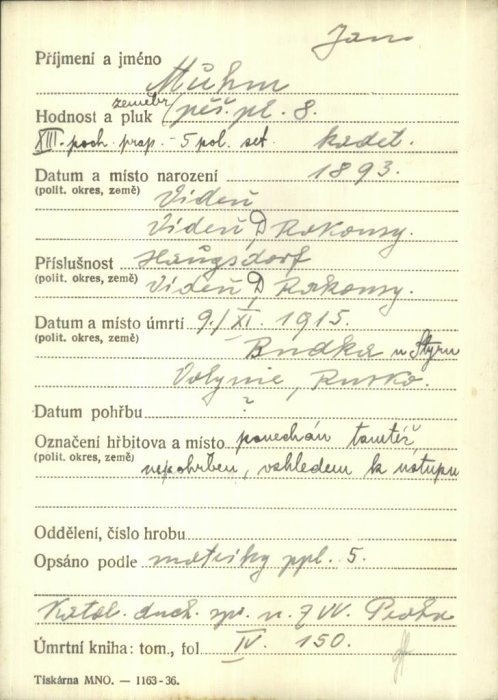 Jan
Příjmení a jméno
Mühm
Hodnost a pluk zeměbr. pěš. pl. 8.
XIII. poch. prap. - 5 pol. set. kadet.
Datum a místo narození 1893.
(polit. okres, země) Vídeň
Vídeň, D. Rakousy.
Příslušnost Haugsdorf
(polit. okres, země) Vídeň, D. Rakousy.
Datum a místo úmrtí 9./XI. 1915.
(polit. okres, země) Budka u Styru
Volynie, Rusko.
Datum pohřbu ?
Označení hřbitova a místo ponechán tamtéž
(polit. okres, země) nepohřben, vzhledem k ústupu
Oddělení, číslo hrobu
Opsáno podle matriky ppl. 5.
Katol. duch. spr. n. ZVV. Praha
Úmrtní kniha: tom., fol IV. 150.
Tiskárna MNO. — 1163-36.